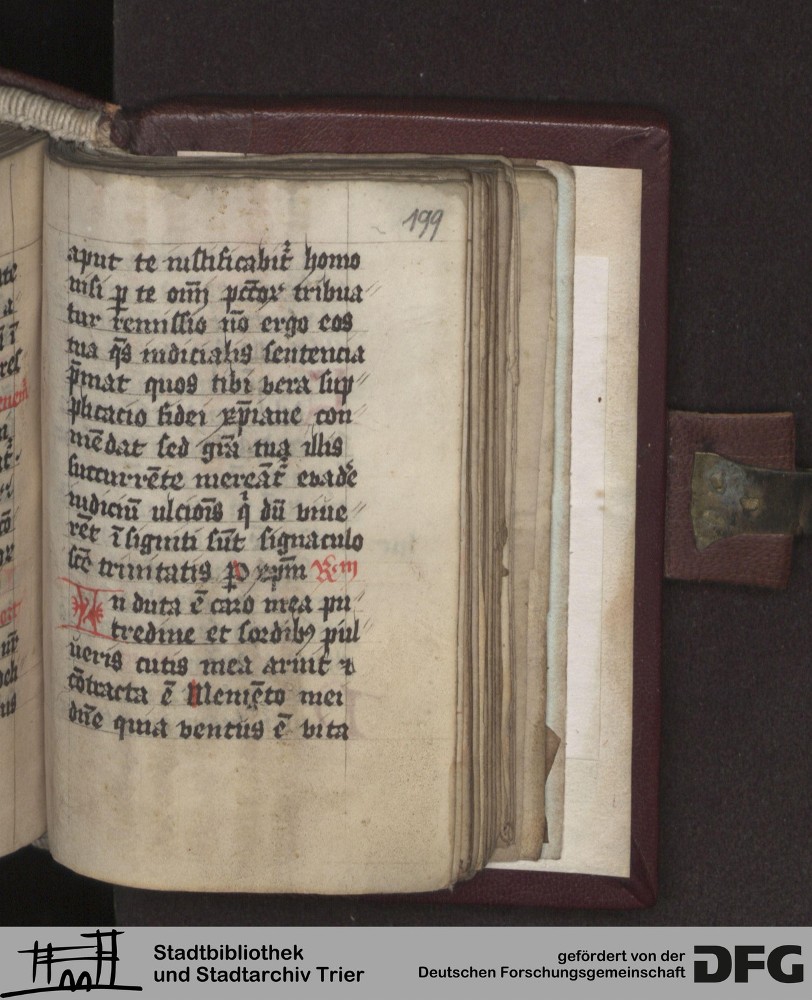 199
aput te iustificabit᷑ homo
nisi ꝑ te oīm̄ pctōꝝ tribua
tur remissio nō ergo eos
tua q̄s iudicialis sentencia
p̄mat quos tibi vera sup
plicacio fidei xp̄iane con
mēdat sed grā tua illis
succurrēte mereāt᷑ evade
iudiciū ulcioīs q̄ dū viue
rēt īsigniti sūt signaculo
scē trinitatis ꝑ xp̄m
Induta ē caro mea pu
tredine et sordibꝫ pul
ueris cutis mea aruit ⁊
cōtracta ē Memēto mei
dn̄e quia ventus ē vita
Stadtbibliothek
und Stadtarchiv Trier
gefördert von der
Deutschen Forschungsgemeinschaft
DFG